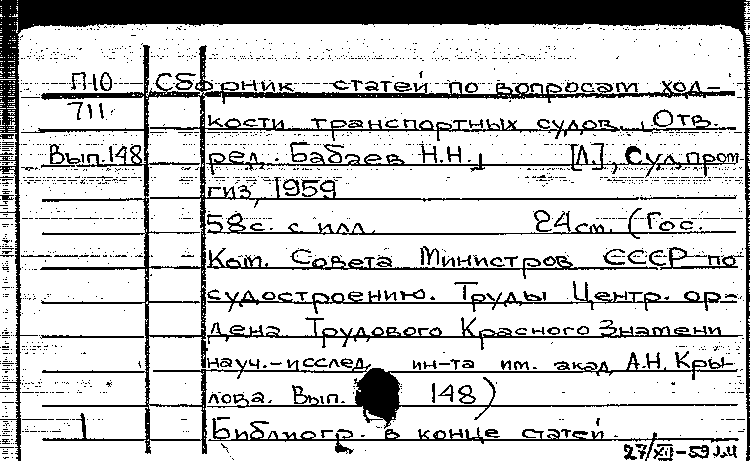 П10 Сборник статей по вопросам ход-
711 кости транспортных судов. Отв.
Вып.148 ред. Бабаев Н.Н. [Л.], Судпром
гиз, 1959
58с. с илл. 24см. (Гос.
Ком. Совета Министров СССР по
судостроению. Труды Центр. ор-
дена Трудового Красного Знамени
науч.-исслед. ин-та им. акад. А.Н. Кры-
лова. Вып. 148)
1 Библиогр. в конце статей
27/XII-59